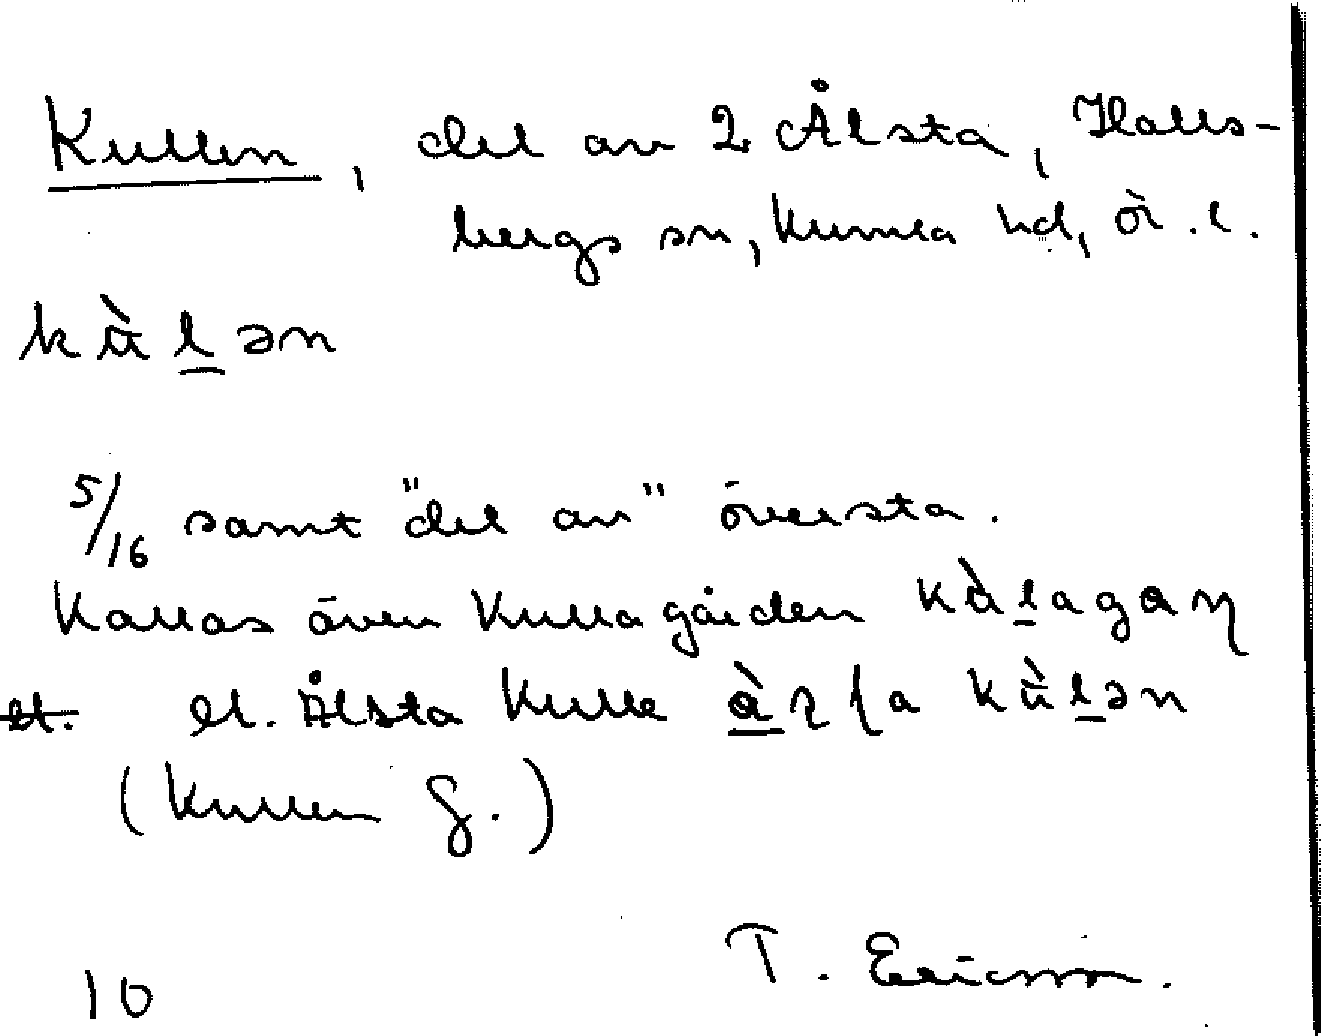 Kullen, del av 2 Ålsta, Halls-
bergs sn, Kumla hd, Ör. l.
kùlən
5/16 samt "del av" översta.
Kallas även Kullagården kùlagaɳ
el. el. Ålsta Kulle
(Kullen g.)
T. Ericsson.
10